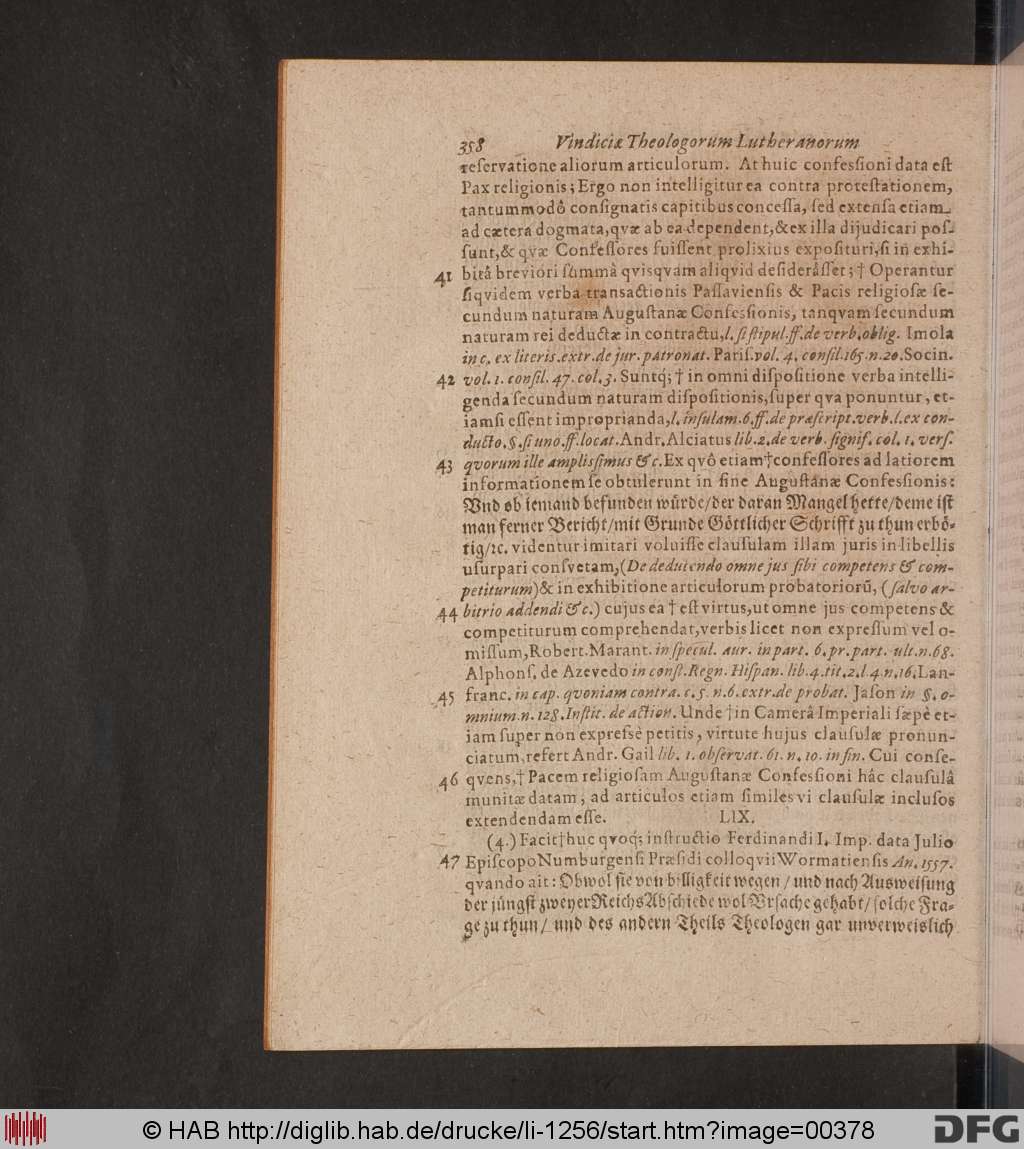 358 Vindiciæ Theologorum Lutheranorum
reſervatione aliorum articulorum. At huic confesſioni data eſt
Pax religionis; Ergo non intelligitur ea contra proteſtationem,
tantummodô conſignatis capitibus conceſſa, ſed extenſa etiam
ad cætera dogmata, qvæ ab ea dependent, & ex illa dijudicari poſ-
ſunt, & qvæ Confeſſores fuiſſent prolixius expoſituri, ſi in exhi-
41 bitâ breviori ſummâ qvisqvam aliqvid deſiderâſſet; † Operantur
ſiqvidem verba transactionis Paſſavienſis & Pacis religioſæ ſe-
cundum naturam Auguſtanæ Confesſionis, tanqvam ſecundum
naturam rei deductæ in contractu, l. ſi ſtipul. ff. de verb. oblig. Imola
in c. ex literis. extr. de jur. patronat. Pariſ. vol. 4. conſil. 165. n. 20. Socin.
42 vol. 1. conſil. 47. col. 3. Suntq́; † in omni diſpoſitione verba intelli-
genda ſecundum naturam diſpoſitionis, ſuper qva ponuntur, et-
iamſi eſſent improprianda, l. inſulam. 6. ff. de præſcript. verb. l. ex con-
ducto. §. ſi uno. ff. locat. Andr. Alciatus lib. 2. de verb. ſignif. col. 1. verſ.
43 qvorum ille amplisſimus &c. Ex qvô etiam † confeſſores ad latiorem
informationem ſe obtulerunt in fine Auguſtanæ Confesſionis:
Vnd ob iemand befunden wuͤrde/ der daran Mangel hette/ deme iſt
man ferner Bericht/ mit Grunde Goͤttlicher Schrifft zu thun erboͤ-
tig/ ꝛc. videntur imitari voluiſſe clauſulam illam juris in libellis
uſurpari conſvetam, (De deducendo omne jus ſibi competens & com-
petiturum) & in exhibitione articulorum probatoriorū, (ſalvo ar-
44 bitrio addendi &c.) cujus ea † eſt virtus, ut omne jus competens &
competiturum comprehendat, verbis licet non expreſſum vel o-
miſſum, Robert. Marant. in ſpecul. aur. in part. 6. pr. part. ult. n. 68.
Alphonſ. de Azevedo in conſt. Regn. Hiſpan. lib. 4. tit. 2. l. 4. n. 16. Lan-
45 franc. in cap. qvoniam contra. c. 5. n. 6. extr. de probat. Jaſon in §. o-
mnium. n. 128. Inſtit. de action. Unde † in Camerâ Imperiali ſæpè et-
iam ſuper non expreſsè petitis, virtute hujus clauſulæ pronun-
ciatum, refert Andr. Gail lib. 1. obſervat. 61. n. 10. in fin. Cui conſe-
46 qvens, † Pacem religioſam Auguſtanæ Confesſioni hâc clauſulâ
munitæ datam, ad articulos etiam ſimiles vi clauſulæ incluſos
extendendam eſſe. LIX.
(4.) Facit † huc qvoq́; inſtructio Ferdinandi I. Imp. data Julio
47 Epiſcopo Numburgenſi Præſidi colloqvii Wormatienſis An. 1557.
qvando ait: Obwol ſie von billigkeit wegen / und nach Ausweiſung
der juͤngſt zweyer ReichsAbſchiede wol Vrſache gehabt/ ſolche Fra-
ge zu thun/ und des andern Theils Theologen gar unverweislich
© HAB http://diglib.hab.de/drucke/li-1256/start.htm?image=00378
DFG